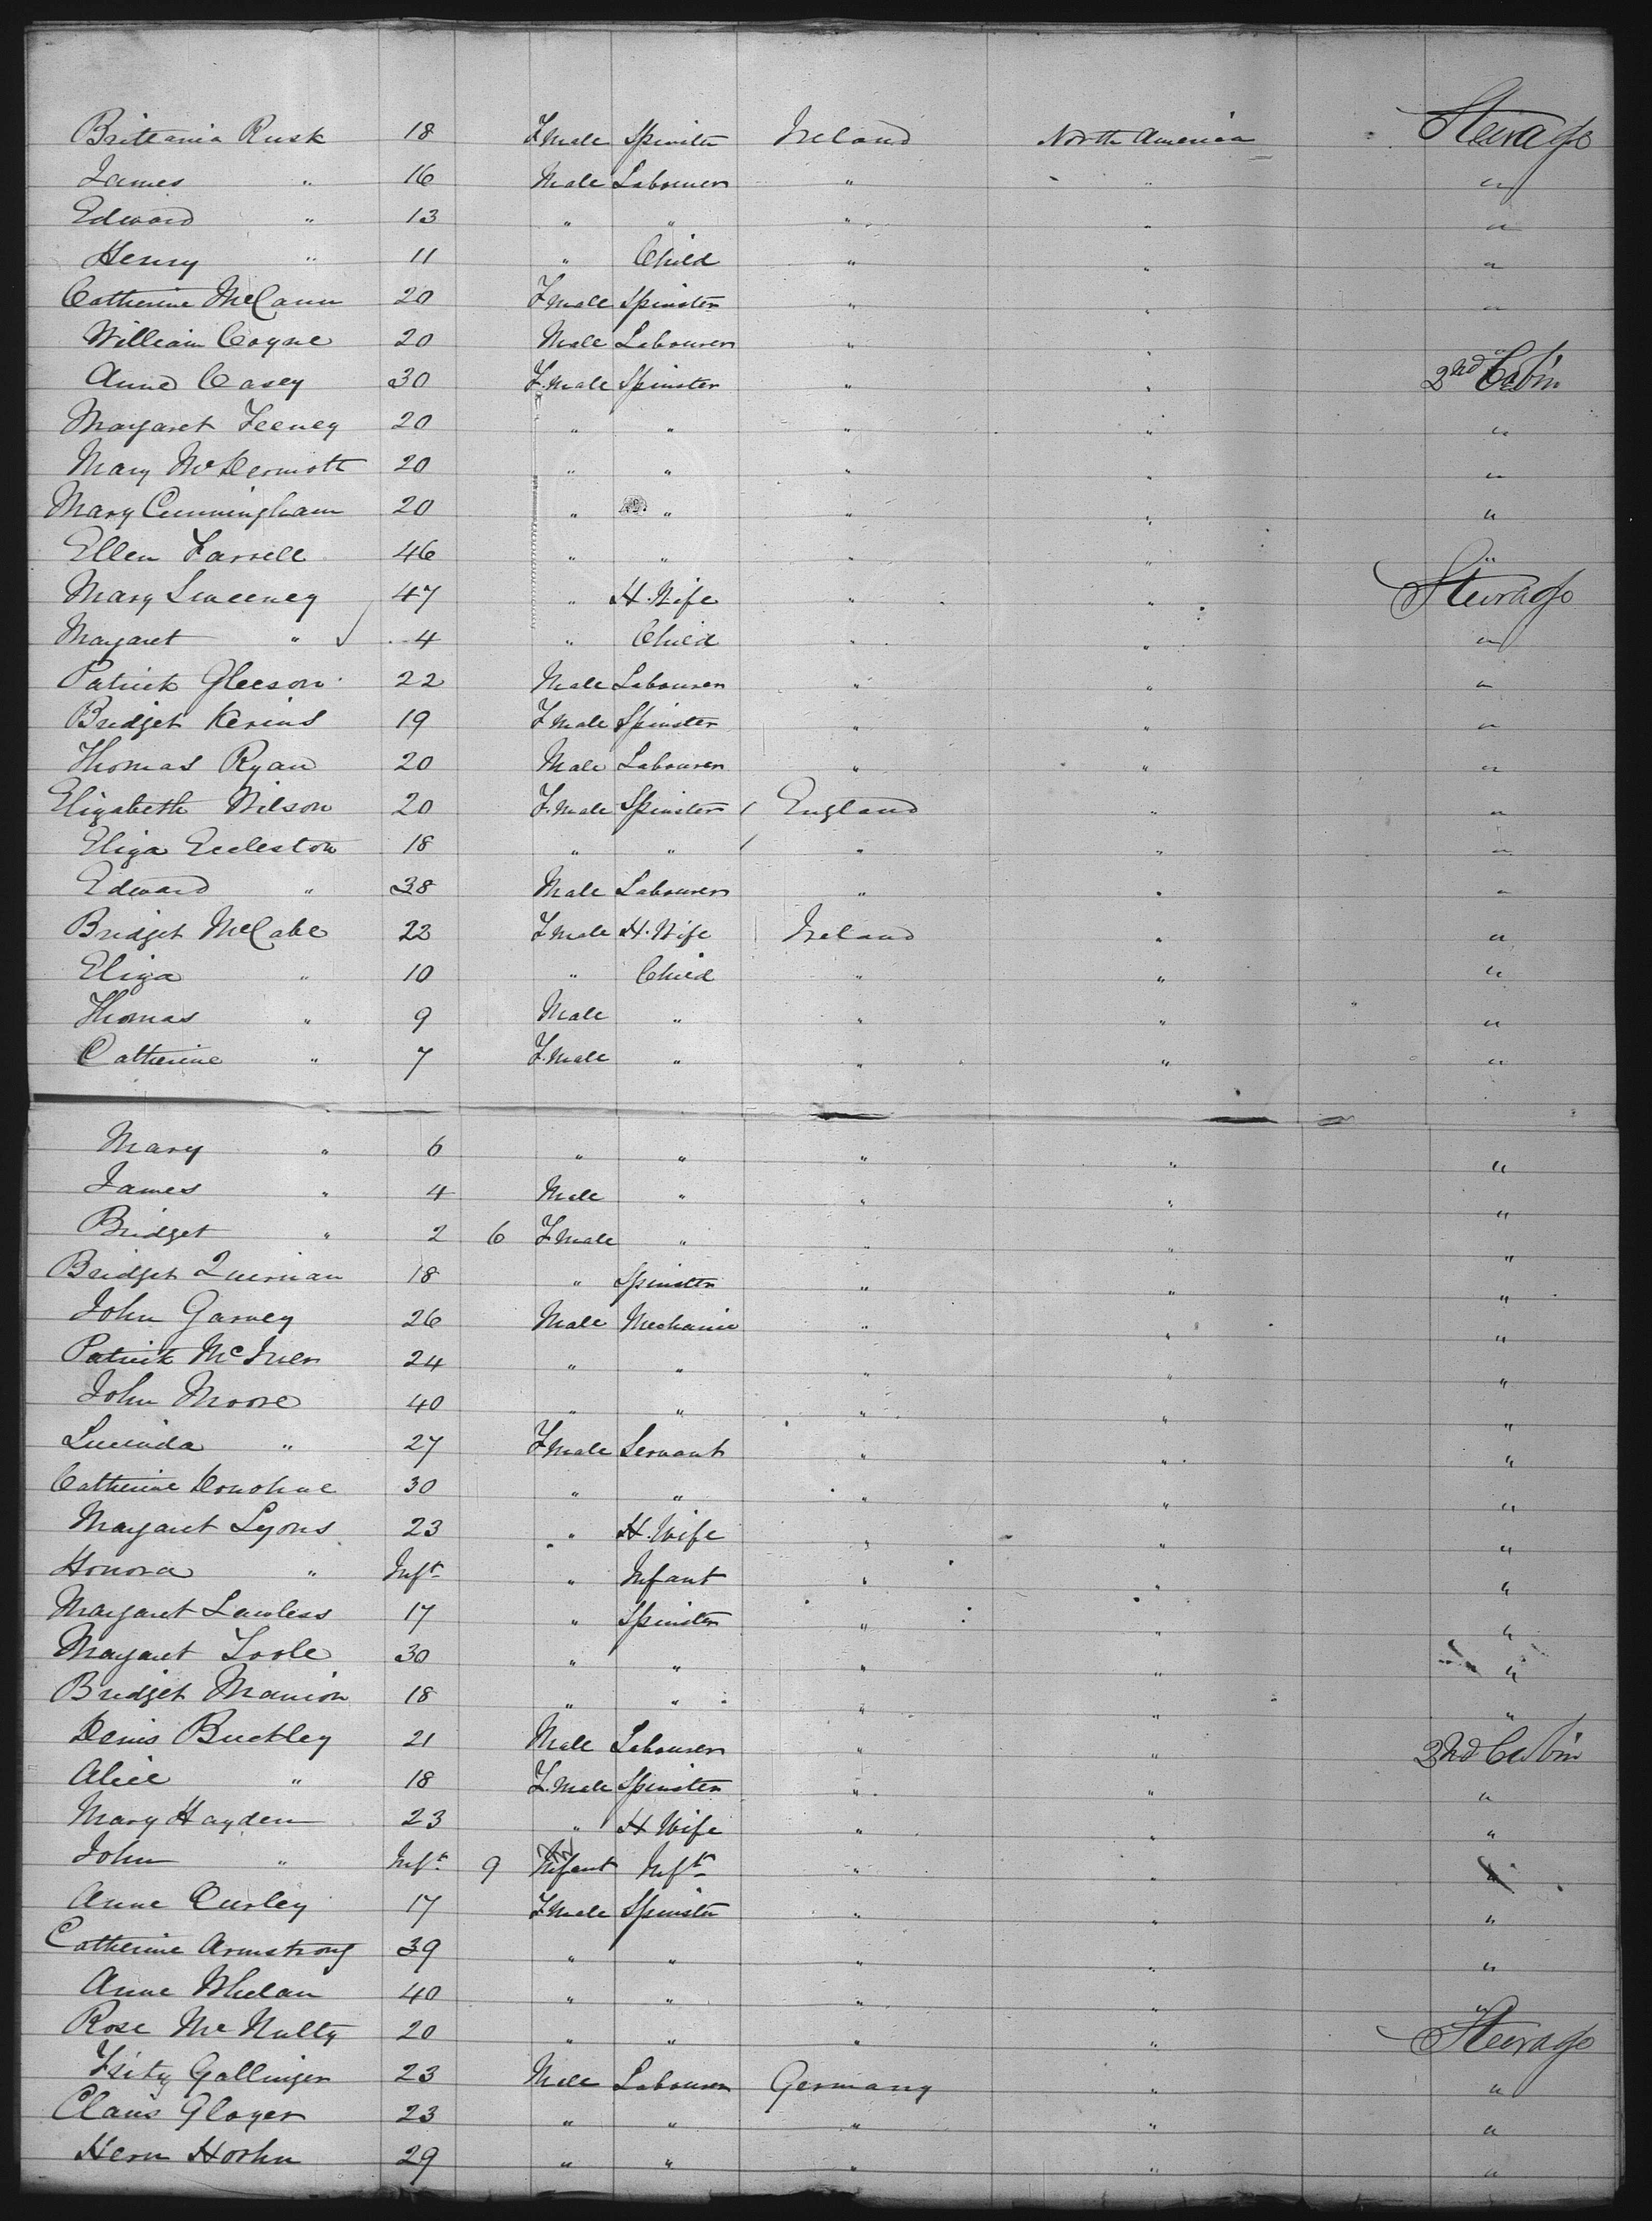 Brittania Rusk 18 Fmale Spinster Ireland North America Steerage
James " 16 Male Labourer " " "
Edward " 13 " " " " "
Henry " 11 " Child " " "
Catherine McCann 20 Fmale Spinster " " "
William Coyne 20 Male Labourer " " "
Anne Casey 30 F.male Spinster " " 2nd Cabin
Margaret Feeney 20 " " " " "
Mary McDermott 20 " " " " "
Mary Cunningham 20 " " " " "
Ellen Farrell 46 " " " " "
Mary Sweeney 47 " H.Wife " " Steerage
Margaret " 4 " Child " " "
Patrick Gleeson 22 Male Labourer " " "
Bridget Kerins 19 Fmale Spinster " " "
Thomas Ryan 20 Male Labourer " " "
Elizabeth Wilson 20 F.male Spinster England " "
Eliza Eccleston 18 " " " " "
Edward " 38 Male Labourer " " "
Bridget McCabe 22 Fmale H.Wife Ireland " "
Eliza " 10 " Child " " "
Thomas " 9 Male " " " "
Catherine " 7 F.male " " " "
Mary " 6 " " " " "
James " 4 Male " " " "
Bridget " 2 6 F.male " " " "
Bridget 18 " Spinster " " "
John Garvey 26 Male Mechanic " " "
Patrick 24 " " " " "
John Moore 40 " " " " "
Lucinda " 27 Fmale Servant " " "
Catherine Donohue 30 " " " " "
Margaret Lyons 23 " H.Wife " " "
Honora " Inft " Infant " " "
Margaret Lawless 17 " Spinster " " "
Margaret Toole 30 " " " " "
Bridget Manion 18 " " " " "
Denis Buckley 21 Male Labourer " " 2nd Cabin
Alice " 18 F.male Spinster " " "
Mary Hayden 23 " H Wife " " "
John " Inft 9 Infant Inft " " "
Anne Curley 17 Fmale Spinster " " "
Catherine Armstrong 39 " " " " "
Anne Whelan 40 " " " " "
Rose McNulty 20 " " " " Steerage
Fritz Gallinger 23 Male Labourer Germany " "
Claus Gloyer 23 " " " " "
Herm Horhn 29 " " " " "